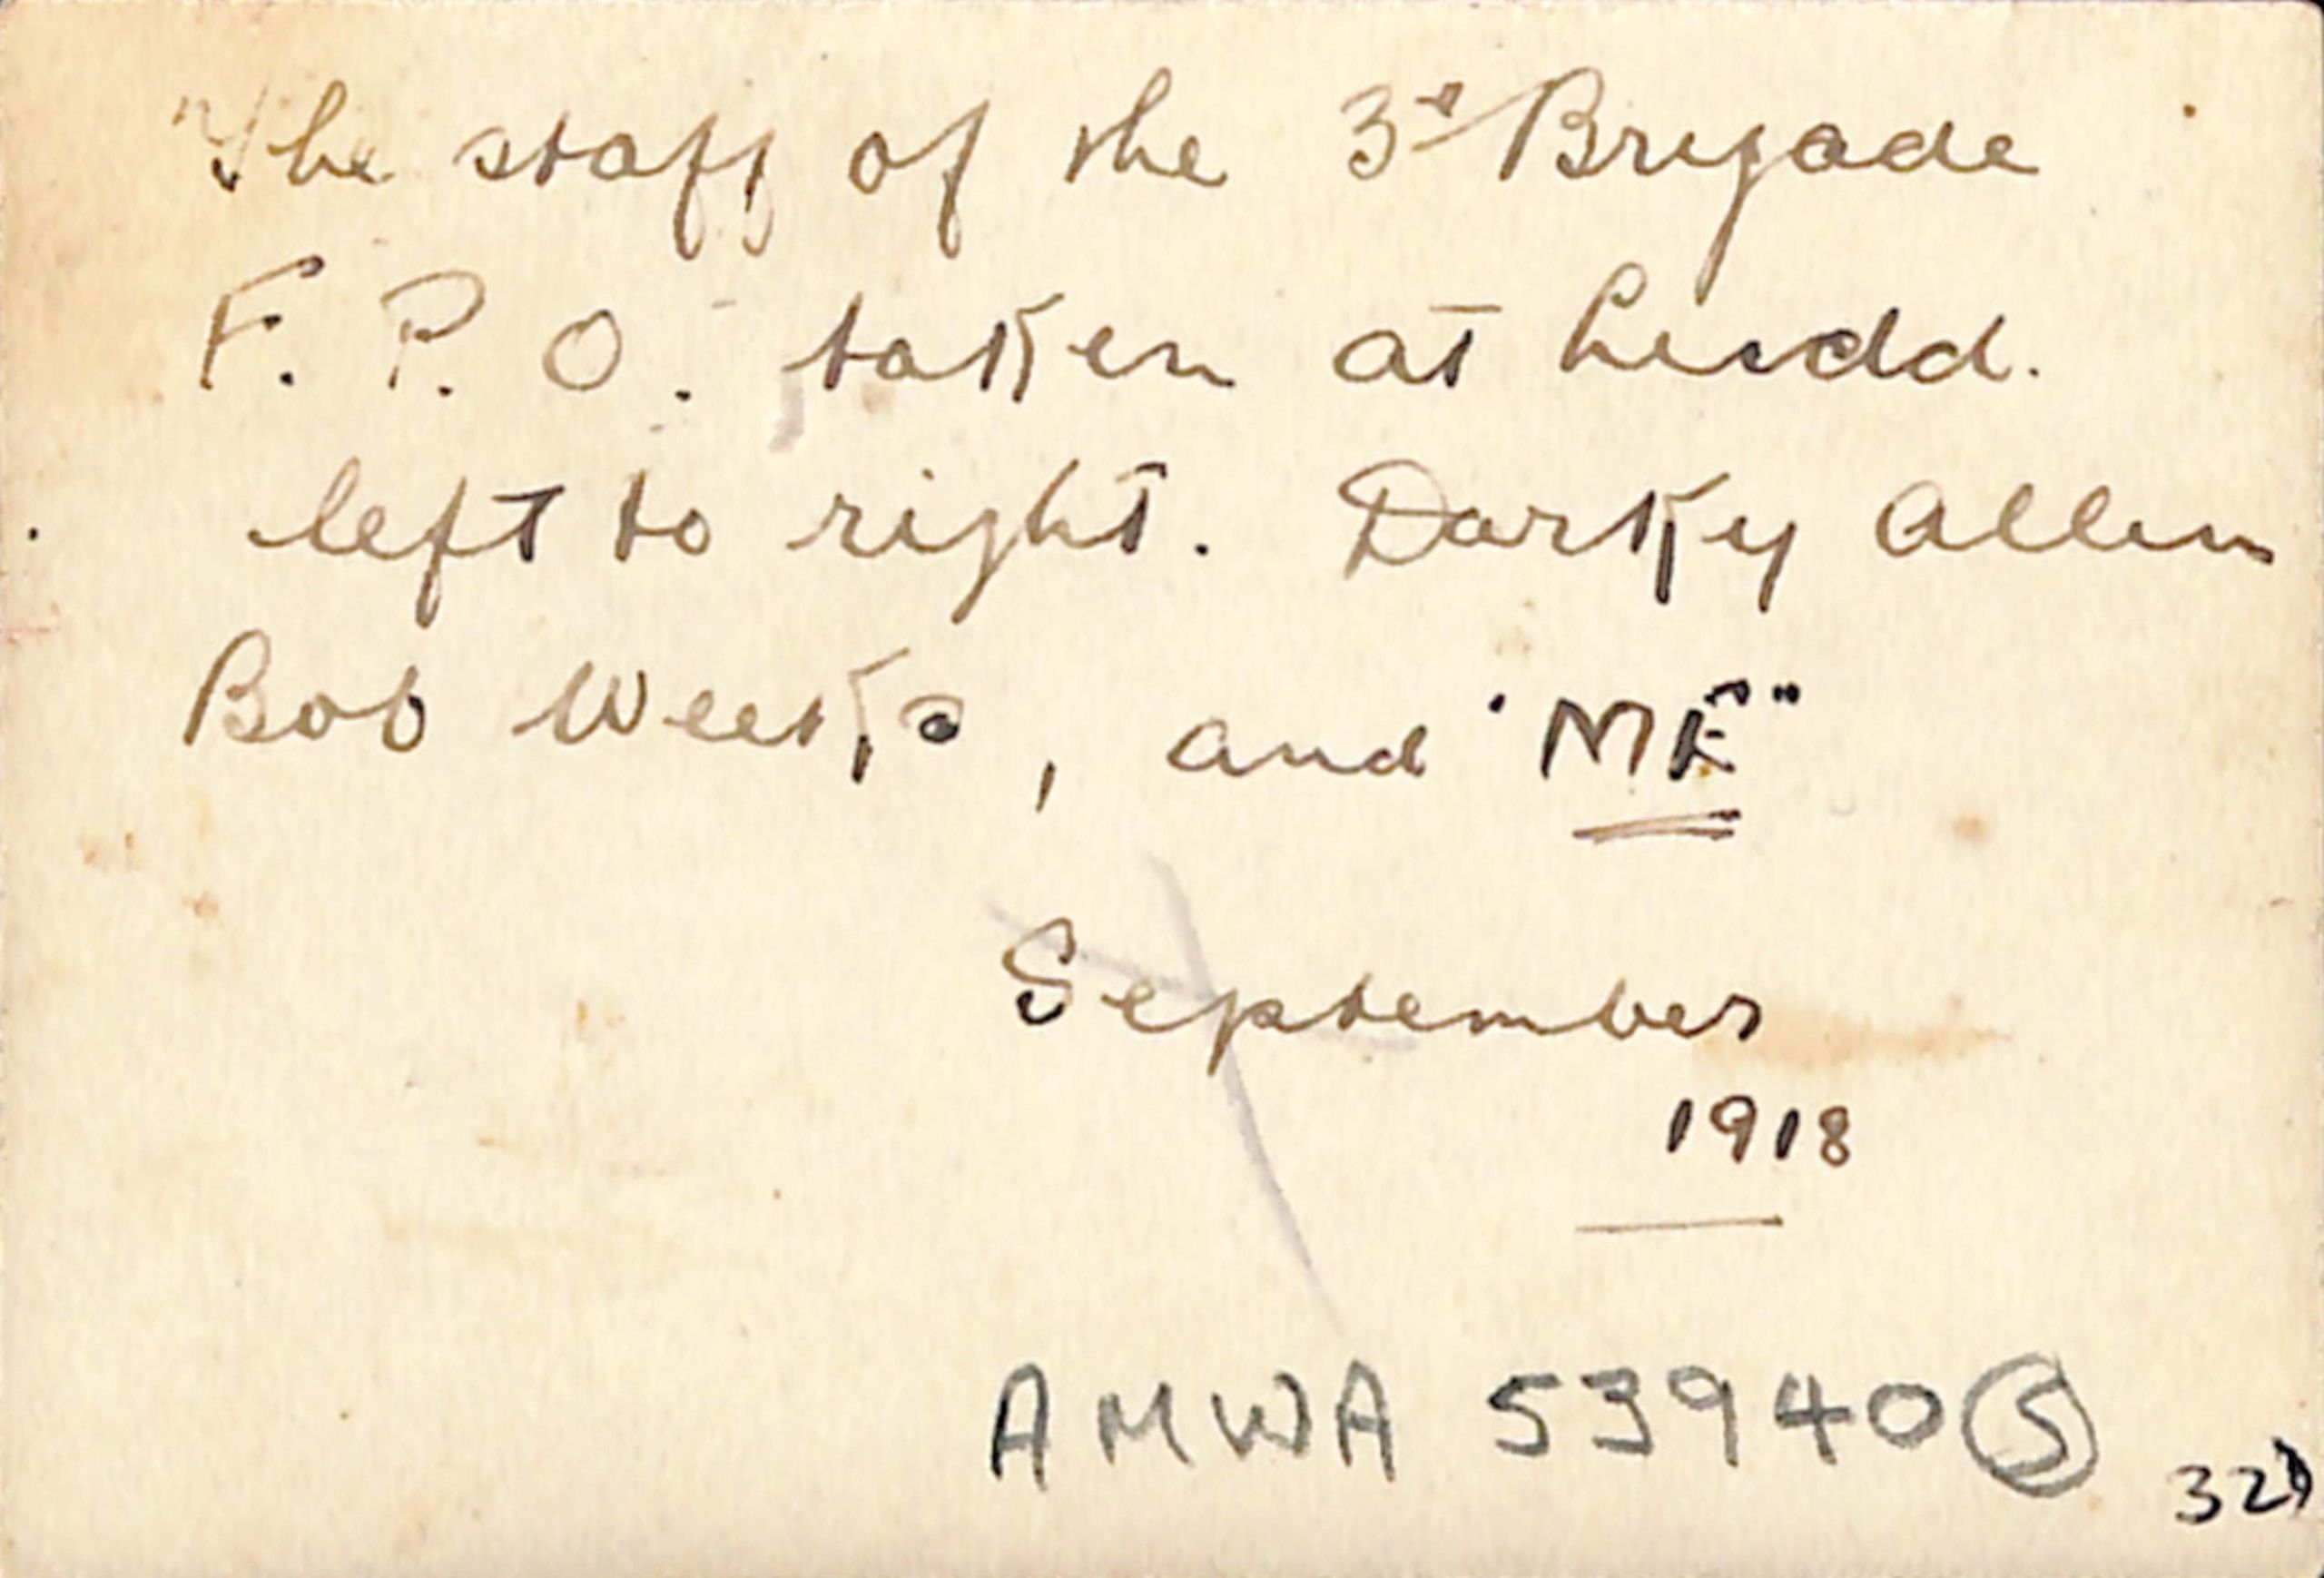 The staff of the 3rd Brigade
F. P. O. taken at Ludd.
left to right. Darky Allen
Bob Weeks, and "ME"
September
1918
AMWA 53940 S
32)